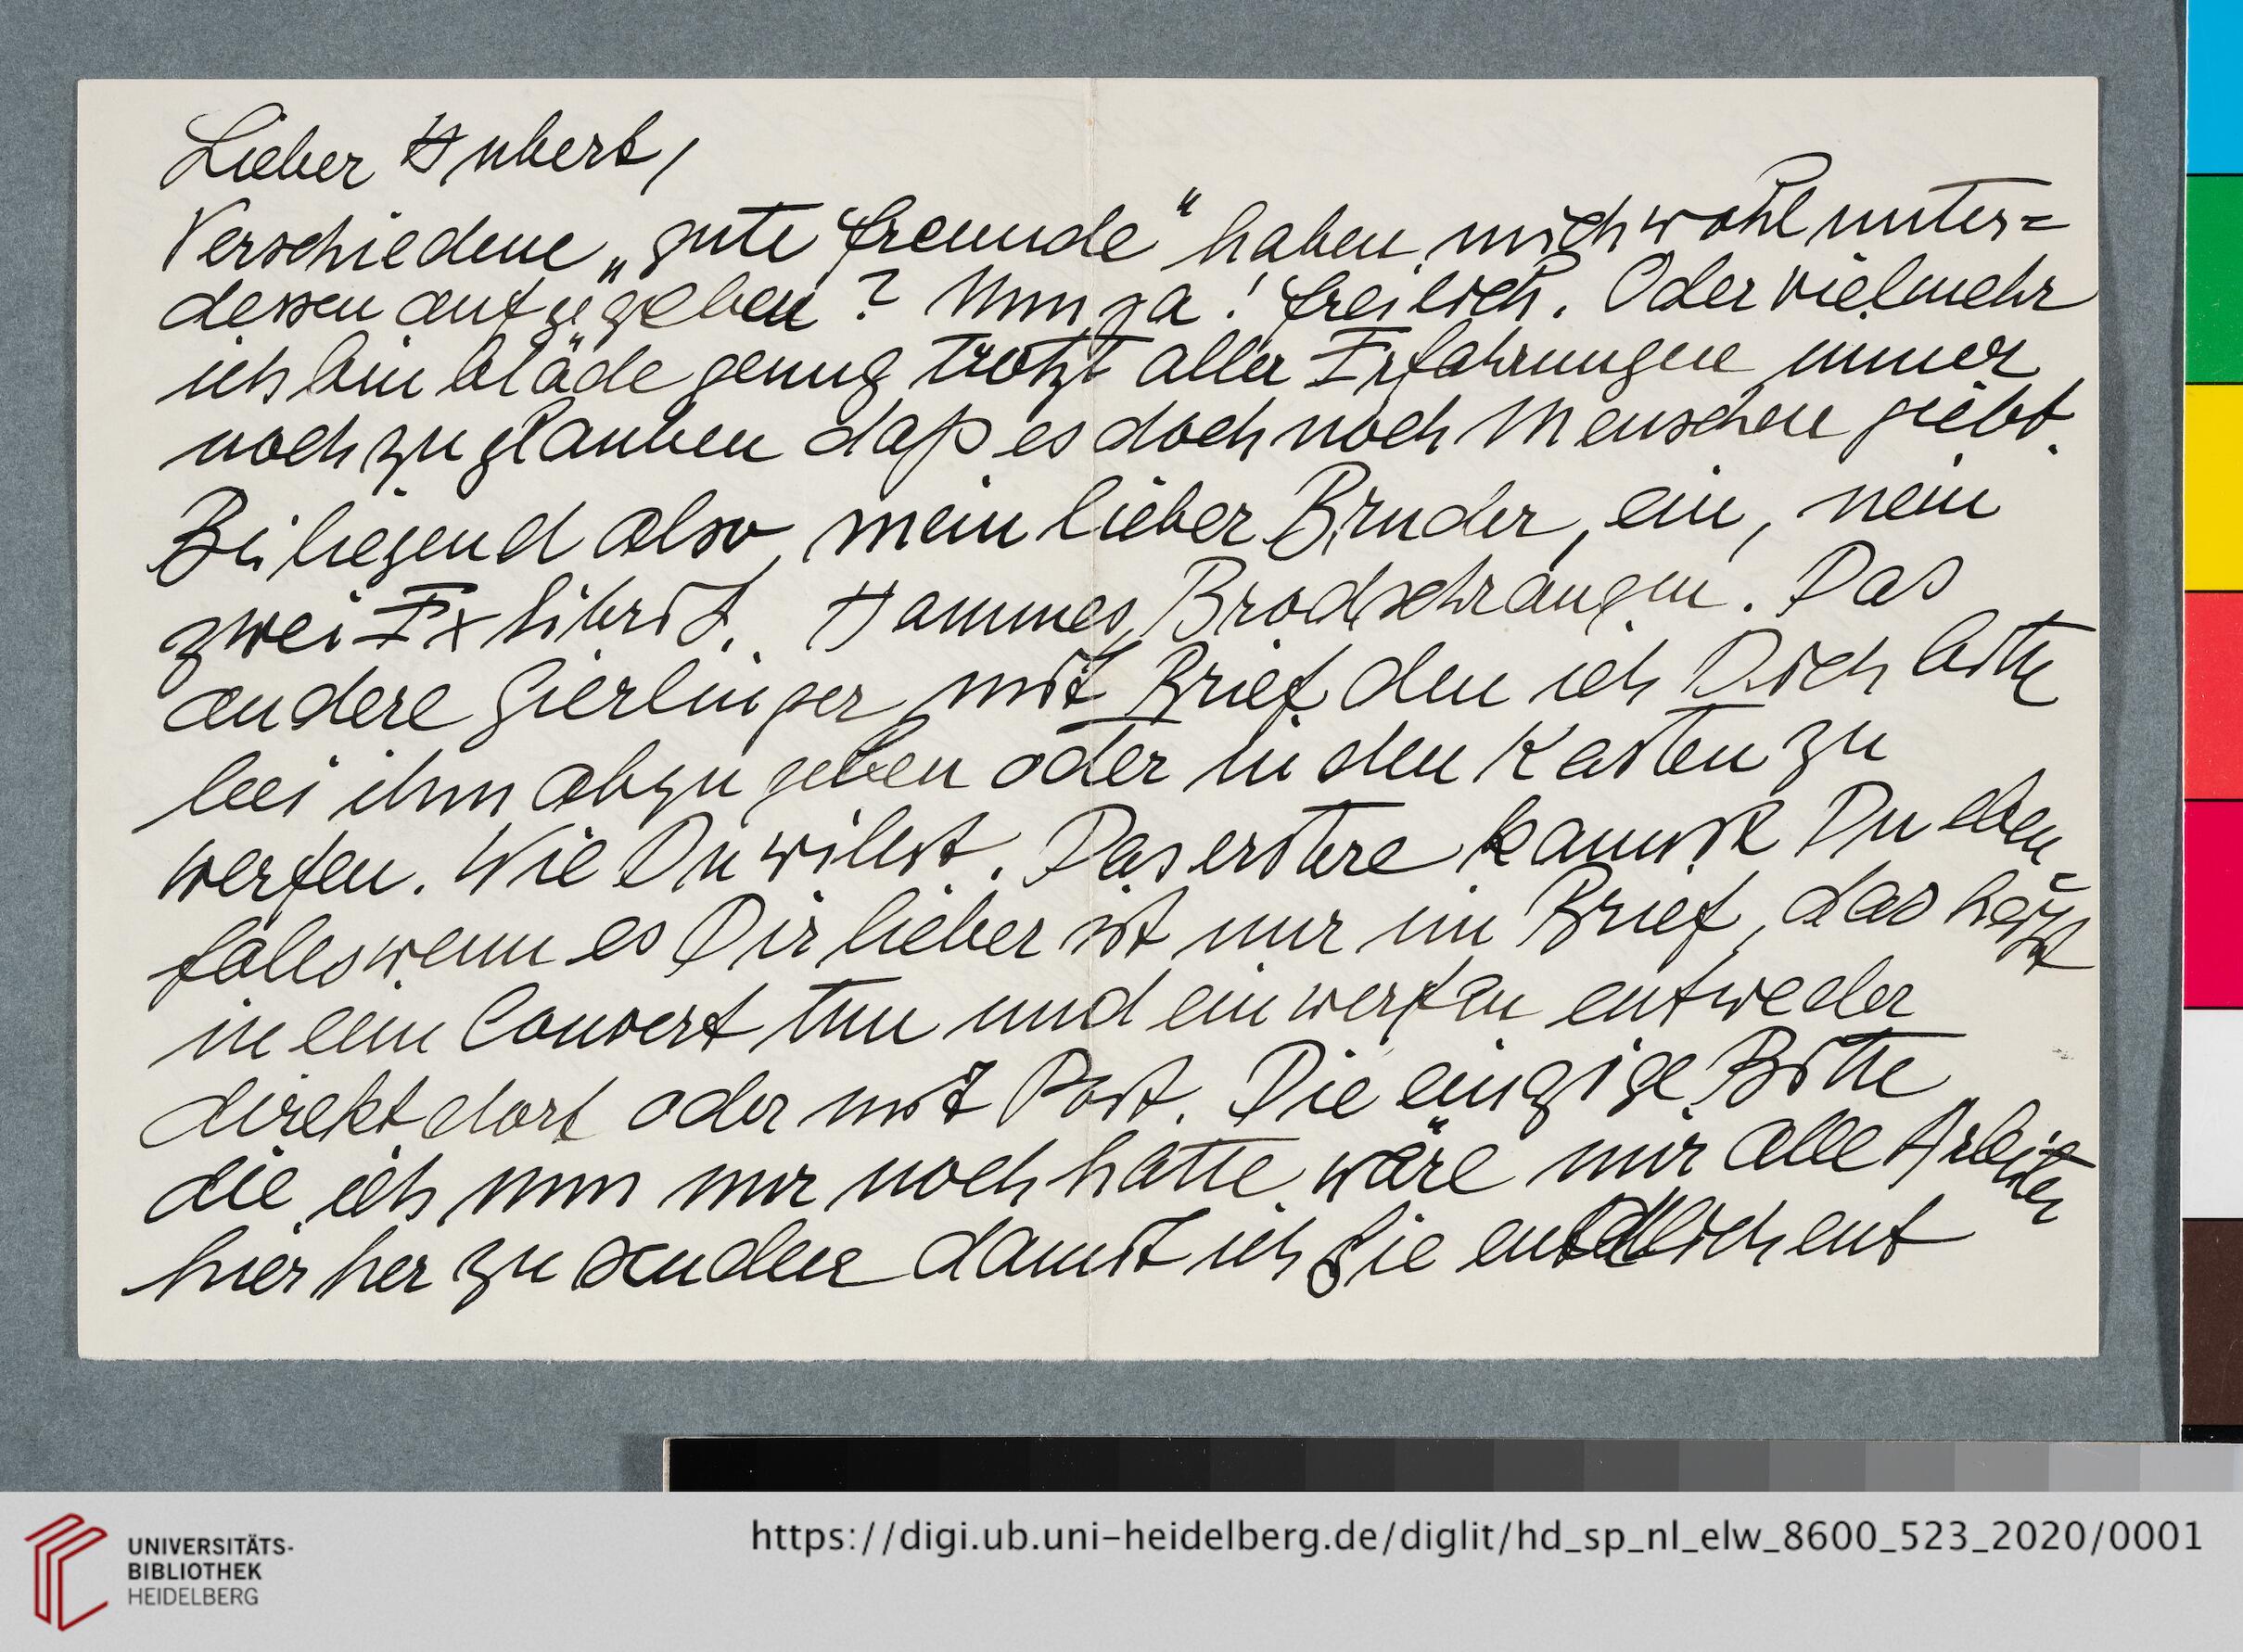 Lieber Hubert,
Verschiedene „gute Freunde“ haben mich wohl unter=
dessen aufgegeben? Nun ja! freilich. Oder vielmehr
ich bin blöde genug trotzt aller Erfahrungen immer
noch zu glauben daß es doch noch Menschen giebt.
Beiliegend also, mein lieber Bruder, ein, nein
zwei Exlibris. Hammes, Brodschrangen. Das
andere Gierlinger mit Brief den ich Dich bitte
bei ihm abzugeben oder in den Kasten zu
werfen. Wie Du willst. Das erstere kannst Du eben
falls wenn es Dir lieber ist nur im Brief, das heißt
in ein Couvert tun und einwerfen entweder
direkt dort oder mit Post. Die einzige Bitte
die ich nun nur noch hätte wäre mir alle Arbeiten
hierher zu senden damit ich Sie endlich ent
UNIVERSITÄTS-
BIBLIOTHEK
HEIDELBERG
https://digi.ub.uni-heidelberg.de/diglit/hd_sp_nl_elw_8600_523_2020/0001